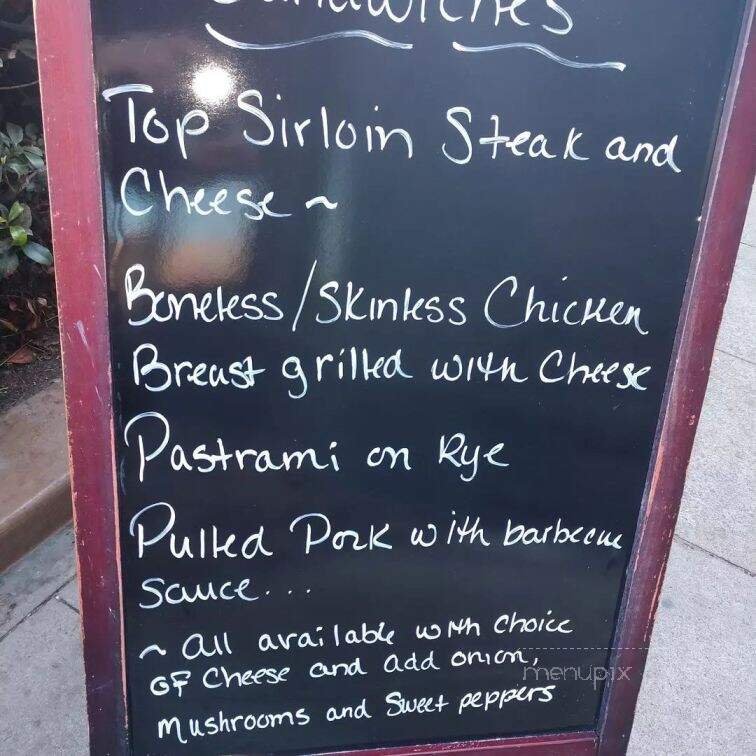 Sandwiches
Top Sirloin Steak and
Cheese ~
Boneless/Skinless Chicken
Breast grilled with Cheese
Pastrami on Rye
Pulled Pork with barbecue
sauce...
~ all available with choice
OF Cheese and add onion,
menupix
Mushrooms and Sweet peppers